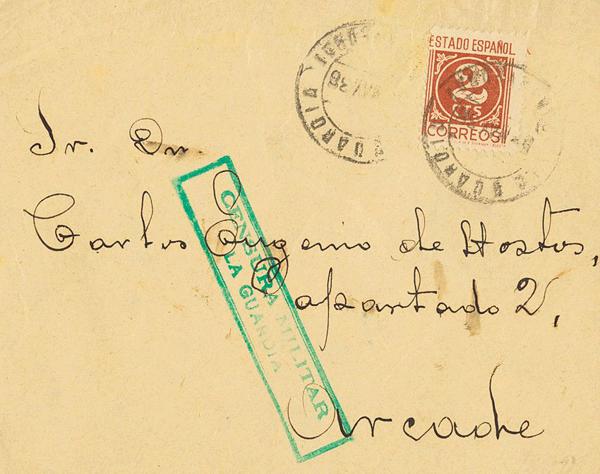 ESTADO ESPAÑOL
2
CTS
CORREOS
LA GUARDIA
Sr. Dr.
Carlos Eugenio de Hostos,
Apartado 2,
Arcade
CENSURA MILITAR
LA GUARDIA